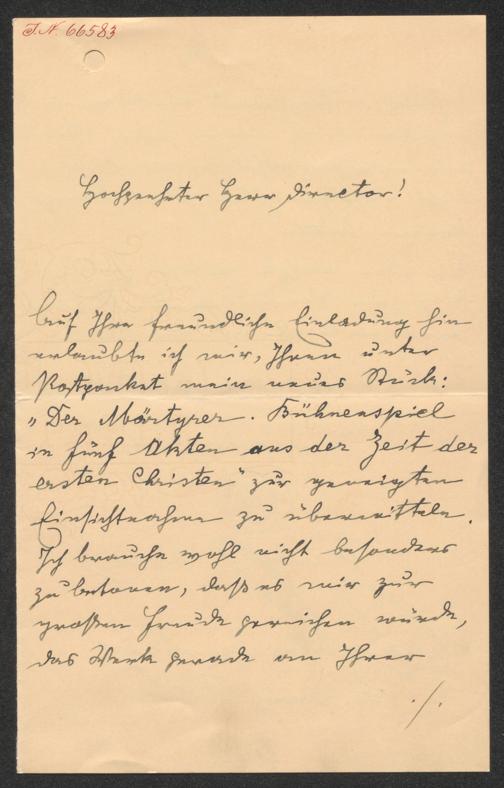 J.N. 66583
Hochgeehrter Herr Director!
Auf Ihre freundliche Einladung hin
erlaubte ich mir, Ihnen unter
Postpacket mein neues Stück:
„Der Märtyrer. Bühnenspiel
in fünf Akten aus der Zeit der
ersten Christen" zur geneigten
Einsichtnahme zu übermitteln.
Ich brauche wohl nicht besonders
zu betonen, daß es mir zur
großen Freude gereichen würde,
das Werk gerade an Ihrer
./.